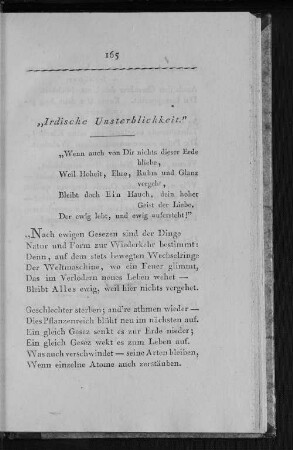 165
„Irdische Unsterblichkeit."
„Wenn auch von Dir nichts dieser Erde
bliebe,
Weil Hoheit, Ehre, Ruhm und Glanz
vergeht,
Bleibt doch Ein Hauch, dein hoher
Geist der Liebe,
Der ewig lebt, und ewig aufersteht!"
„Nach ewigen Gesezen sind der Dinge
Natur und Form zur Wiederkehr bestimmt:
Denn, auf dem stets bewegten Wechselringe
Der Weltmaschine, wo ein Feuer glimmt,
Das im Verlodern neues Leben wehet —
Bleibt Alles ewig, weil hier nichts vergehet.
Geschlechter sterben; and're athmen wieder —
Dies Pflanzenreich blüht neu im nächsten auf.
Ein gleich Gesez senkt es zur Erde nieder;
Ein gleich Gesez wekt es zum Leben auf.
Was auch verschwindet — seine Arten bleiben,
Wenn einzelne Atome auch zerstäuben.